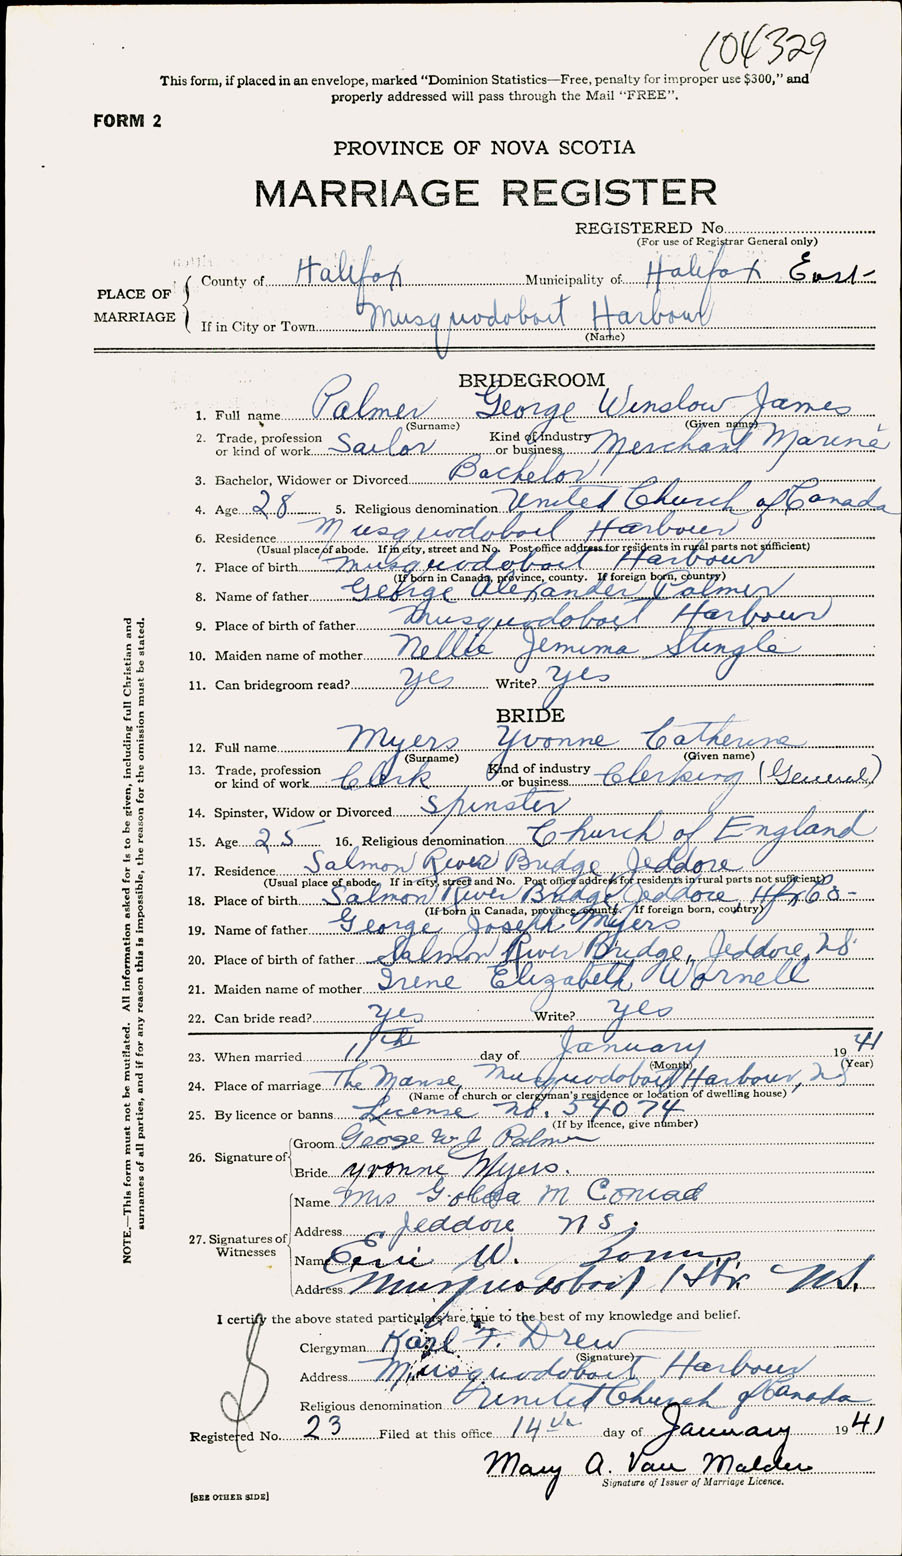 104329
This form, if placed in an envelope, marked “Dominion Statistics—Free, penalty for improper use $300,” and
properly addressed will pass through the Mail “FREE”.
FORM 2
PROVINCE OF NOVA SCOTIA
MARRIAGE REGISTER
REGISTERED No.
(For use of Registrar General only)
PLACE OF MARRIAGE
County of Halifax Municipality of Halifax East
If in City or Town Musquodoboit Harbour
(Name)
BRIDEGROOM
1. Full name Palmer George Winslow James
(Surname) (Given name)
2. Trade, profession or kind of work Sailor Kind of industry or business Merchant Marine
3. Bachelor, Widower or Divorced Bachelor
4. Age 28 5. Religious denomination United Church of Canada
6. Residence Musquodoboit Harbour
(Usual place of abode. If in city, street and No. Post office address for residents in rural parts not sufficient)
7. Place of birth Musquodoboit Harbour
(If born in Canada, province, county. If foreign born, country)
8. Name of father George Alexander Palmer
9. Place of birth of father Musquodoboit Harbour
10. Maiden name of mother Nellie Jemima Stingle
11. Can bridegroom read? yes Write? yes
BRIDE
12. Full name Myers Yvonne Catherine
(Surname) (Given name)
13. Trade, profession or kind of work Clerk Kind of industry or business Clerking (General)
14. Spinster, Widow or Divorced Spinster
15. Age 25 16. Religious denomination Church of England
17. Residence Salmon River Bridge, Jeddore
(Usual place of abode. If in city, street and No. Post office address for residents in rural parts not sufficient)
18. Place of birth Salmon River Bridge Jeddore, Hfx Co-
(If born in Canada, province, county. If foreign born, country)
19. Name of father George Joseph Myers
20. Place of birth of father Salmon River Bridge, Jeddore, NS
21. Maiden name of mother Irene Elizabeth Wornell
22. Can bride read? yes Write? yes
23. When married 11th day of January 1941
(Month) (Year)
24. Place of marriage The Manse, Musquodoboit Harbour, NS
(Name of church or clergyman’s residence or location of dwelling house)
25. By licence or banns License no. 54074
(If by licence, give number)
26. Signature of
Groom George W J Palmer
Bride Yvonne Myers.
27. Signatures of Witnesses
Name Mrs Golda M Conrad
Address Jeddore N S.
Name Eric W.
Address Musquodoboit Hbr N.S.
I certify the above stated particulars are true to the best of my knowledge and belief.
Clergyman Karl F. Drew
(Signature)
Address Musquodoboit Harbour
Religious denomination United Church of Canada
Registered No. 23 Filed at this office 14th day of January 1941
Mary A. Van Malder
Signature of Issuer of Marriage Licence.
[SEE OTHER SIDE]
NOTE.—This form must not be mutilated. All information asked for is to be given, including full Christian and
surnames of all parties, and if for any reason this is impossible, the reason for the omission must be stated.